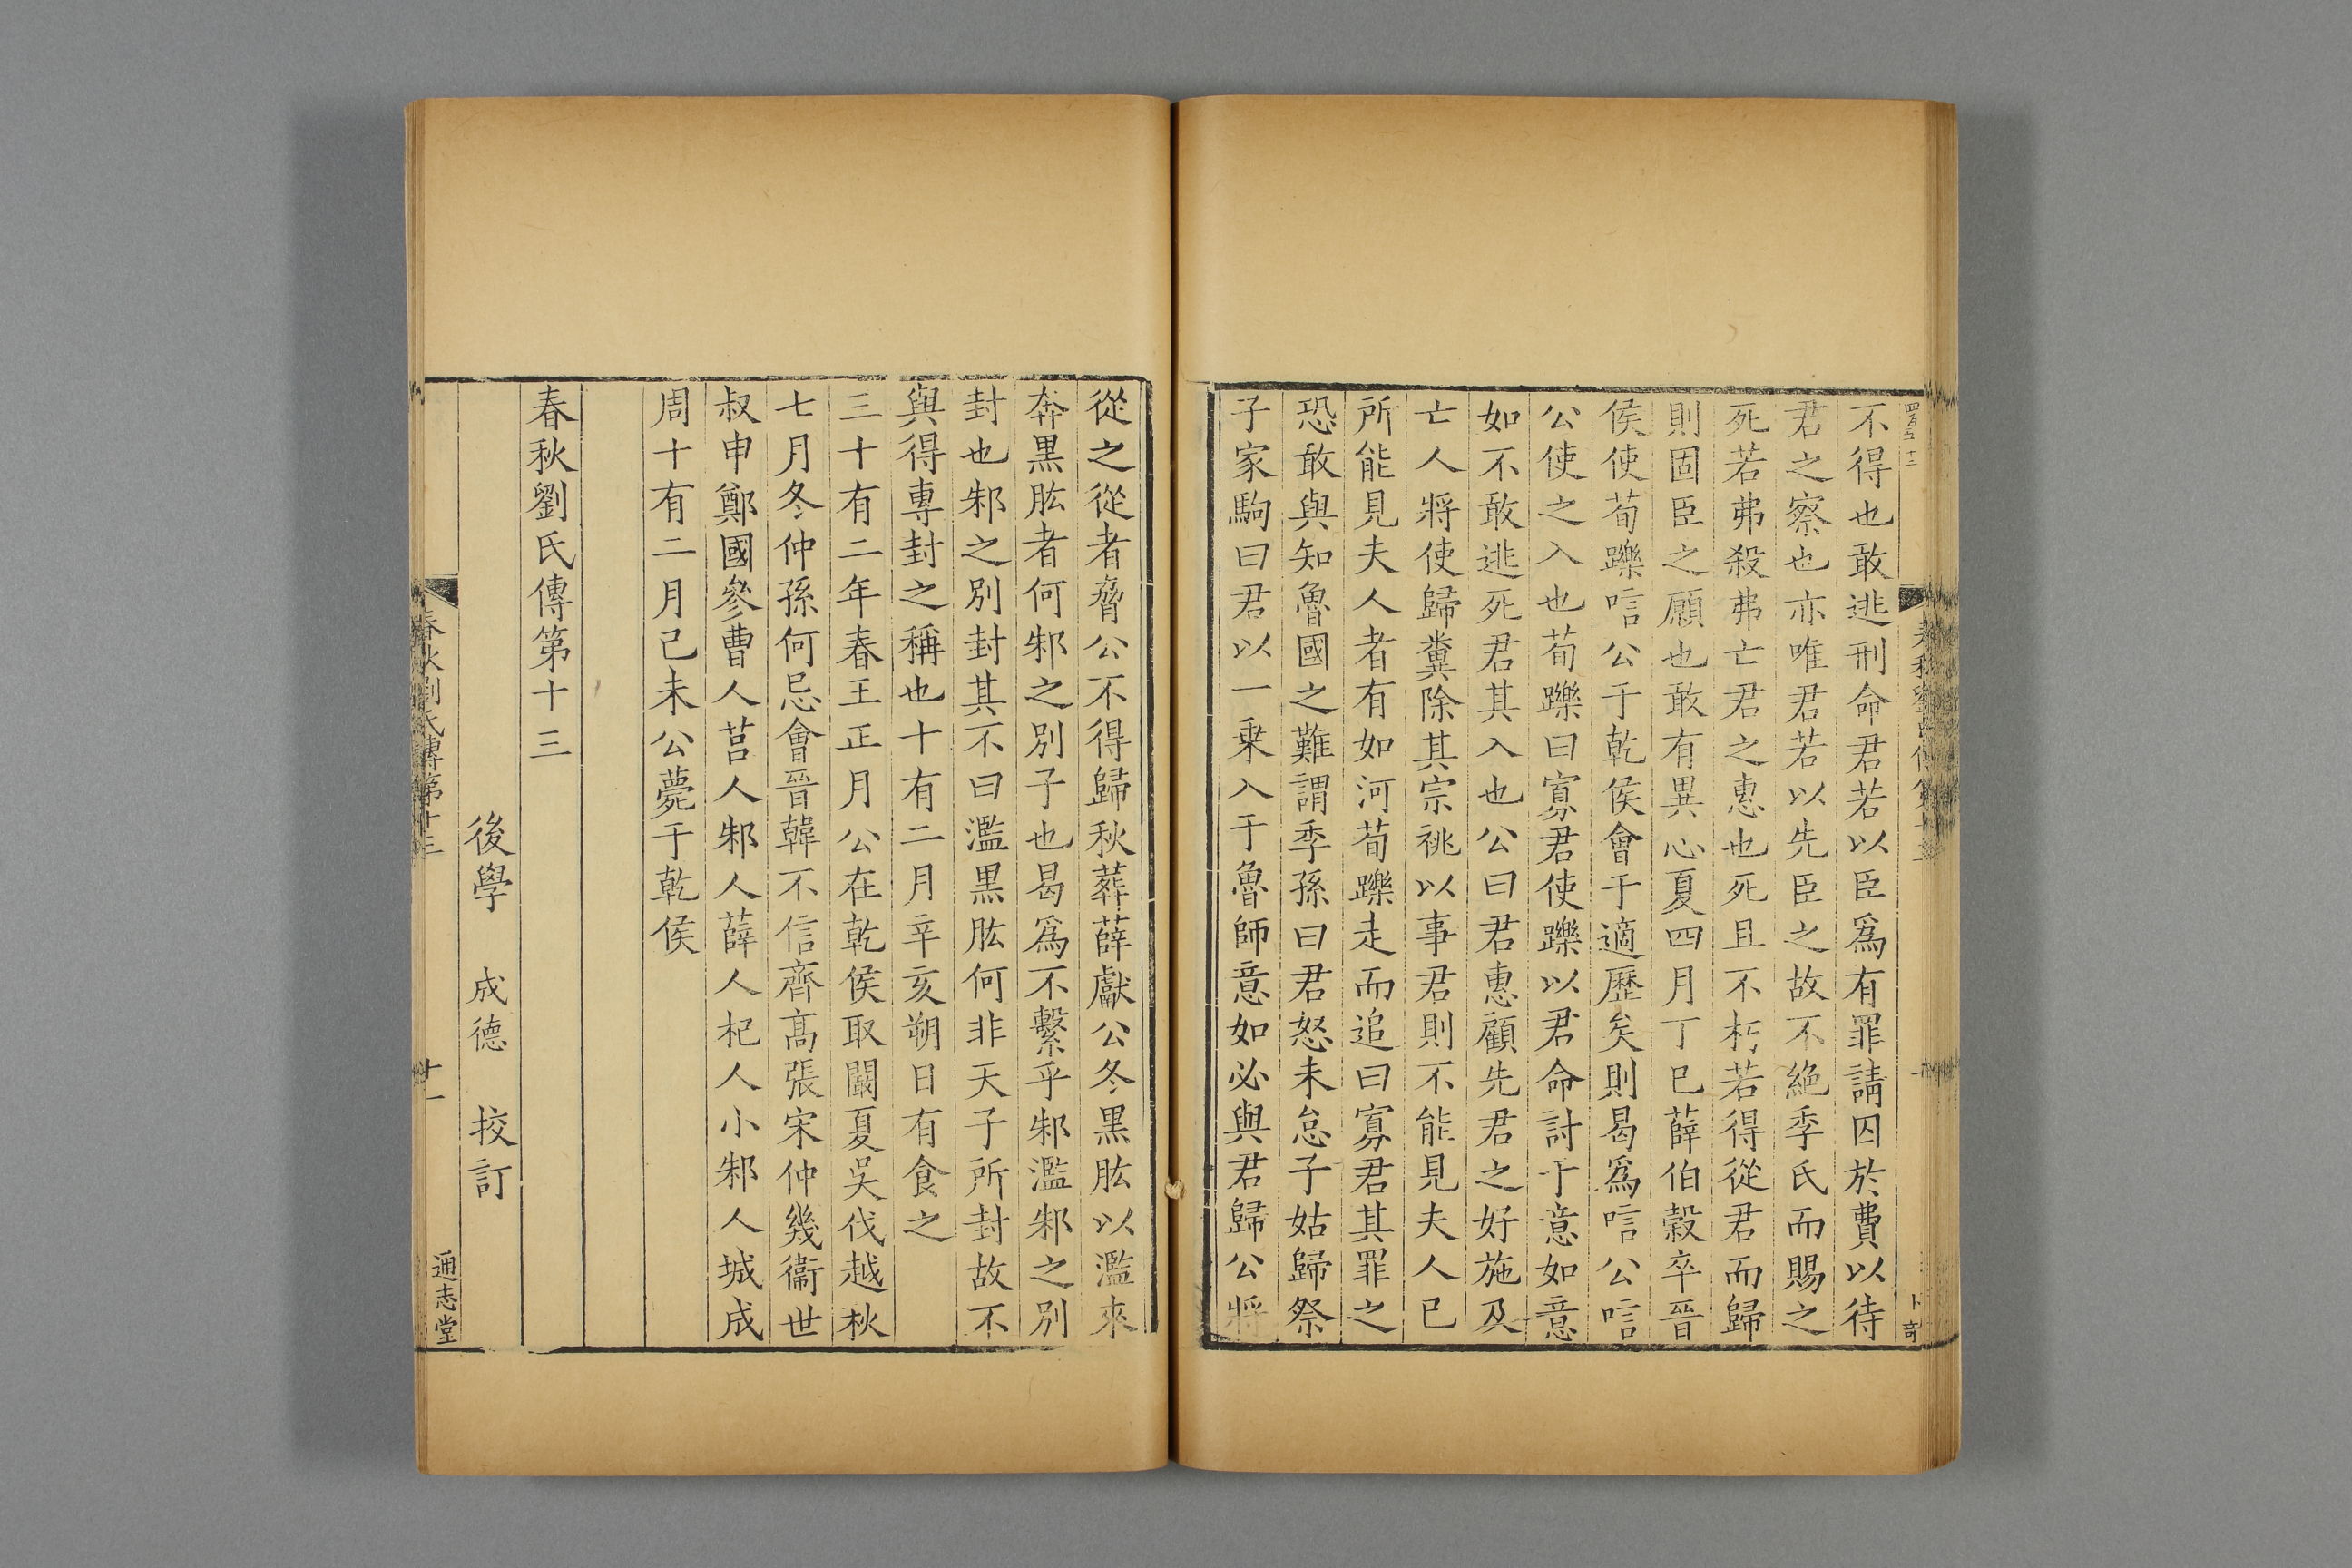 不得也敢逃刑命君若以臣爲有罪請囚於費以待
君之察也亦唯君若以先臣之故不絕季氏而賜之
死若弗殺弗亡君之惠也死且不朽若得從君而歸
則固臣之願也敢有異心夏四月丁巳薛伯穀卒晉
侯使荀躒唁公于乾侯會于適歷矣則曷爲唁公唁
公使之入也荀躒曰寡君使躒以君命討于意如意
如不敢逃死君其入也公曰君惠顧先君之好施及
亡人將使歸糞除其宗祧以事君則不能見夫人已
所能見夫人者有如河荀躒走而追曰寡君其罪之
恐敢與知魯國之難謂季孫曰君怒未怠子姑歸祭
子家駒曰君以一乗入于魯師意如必與君歸公將
從之從者脅公不得歸秋葬薛獻公冬黒肱以濫來
奔黒肱者何邾之別子也曷爲不繫乎邾濫邾之別
封也邾之別封其不曰濫黒肱何非天子所封故不
與得專封之稱也十有二月辛亥朔日有食之
三十有二年春王正月公在乾侯取闞夏吳伐越秋
七月冬仲孫何忌會晉韓不信齊髙張宋仲幾衞世
叔申鄭國參曹人莒人邾人薛人杞人小邾人城成
周十有二月己未公薨于乾侯
春秋劉氏傳第十三
後學 成德 挍訂
春秋劉氏傳第十三
十一
通志堂